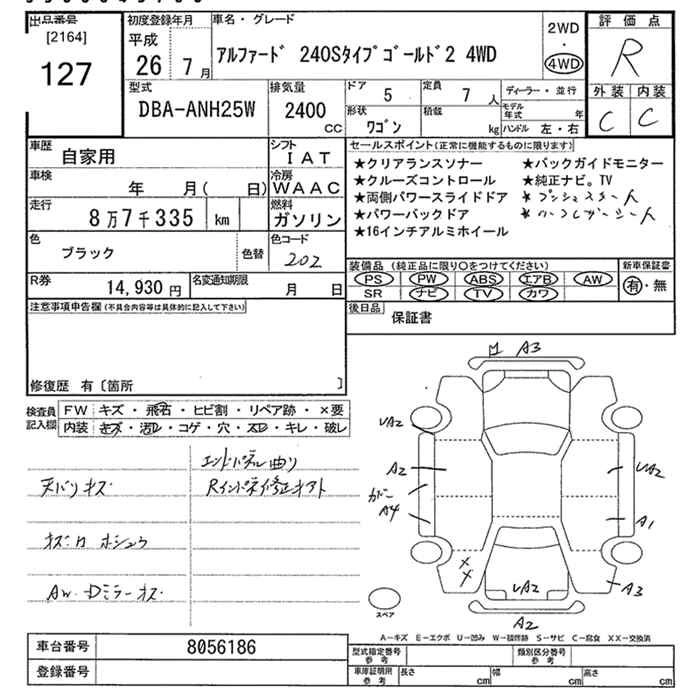 出品番号 [2164] 127
初度登録年月 平成 26年 7月
車名・グレード
アルファード 240Sタイプゴールド2 4WD
2WD・4WD
評価点 R
外装 C 内装 C
型式 DBA-ANH25W
排気量 2400 CC
ドア 5
定員 7 人
形状 ワゴン
積載 kg
ディーラー・並行
モデル年式 年
ハンドル 左・右
車歴 自家用
シフト IAT
車検 年 月( 日)
冷房 WAAC
走行 8万7千335 km
燃料 ガソリン
色 ブラック 色替
色コード 202
R券 14,930 円
名変通知期限 月 日
セールスポイント(正常に機能するものに限ります)
★クリアランスソナー ★バックガイドモニター
★クルーズコントロール ★純正ナビ。TV
★両側パワースライドドア ★プッシュスタート
★パワーバックドア ★ハーフレザーシート
★16インチアルミホイール
装備品(純正品に限り○をつけてください)
PS PW ABS エアB AW
SR ナビ TV カワ
新車保証書 有・無
後日品 保証書
注意事項申告欄(不具合内容等は具体的に記入して下さい)
修復歴 有〔箇所 〕
検査員記入欄
FW キズ・飛石・ヒビ割・リペア跡・×要
内装 キズ・汚レ・コゲ・穴・スレ・キレ・破レ
エンドパネル曲り
天バリキズ Rインパネ修正キアト
ホシュウ
AW・Dミラーキズ
A3
UA2
A2
UA2
A4
A1
UA2
A3
A2
スペア
A-キズ E-エクボ U-凹み W-補修跡 S-サビ C-腐食 XX-交換済
車台番号 8056186
登録番号
型式指定番号 参考 類別区分番号 参考
車庫証明用 参考 長さ cm 幅 cm 高さ cm